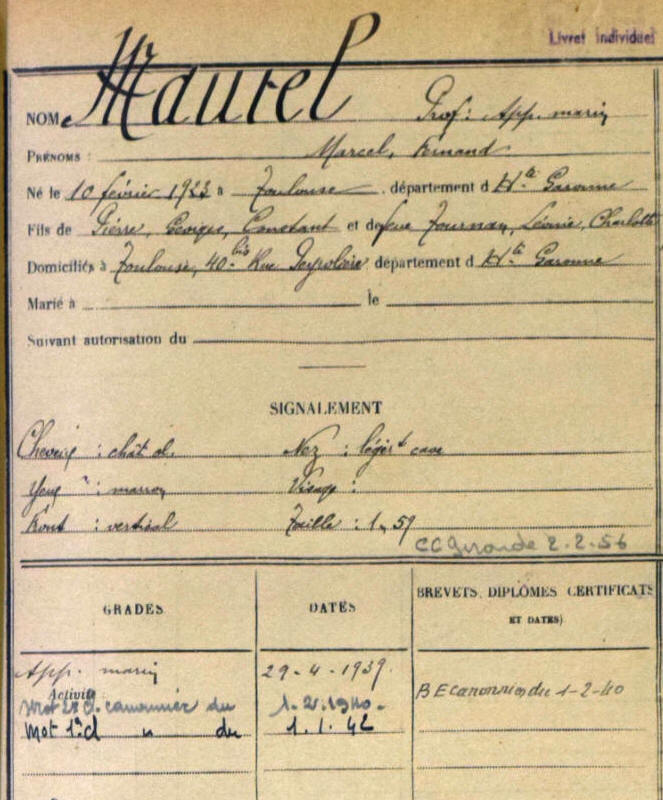 Livret individuel
NOM Maurel Prof: App. marin
PRÉNOMS : Marcel, Fernand
Né le 10 février 1923 à Toulouse, département d Hte Garonne
Fils de Pierre, Georges, Constant et de feue Tournan, Léonie, Charlotte
Domiciliés à Toulouse, 40 bis Rue Peyrolière département d Hte Garonne
Marié à le
Suivant autorisation du
SIGNALEMENT
Cheveux : chât cl. Nez : légèrt cave
Yeux : marron Visage :
Front : vertical Taille : 1,59
CC Gironde 2-2-56
GRADES DATES BREVETS, DIPLÔMES CERTIFICATS
ET DATES)
App. marin 29-4-1939.
Activité
Mot 2e cl. canonnier du 1-2-1940- BE canonnier du 1-2-40
Mot 1e cl " du 1.1.42